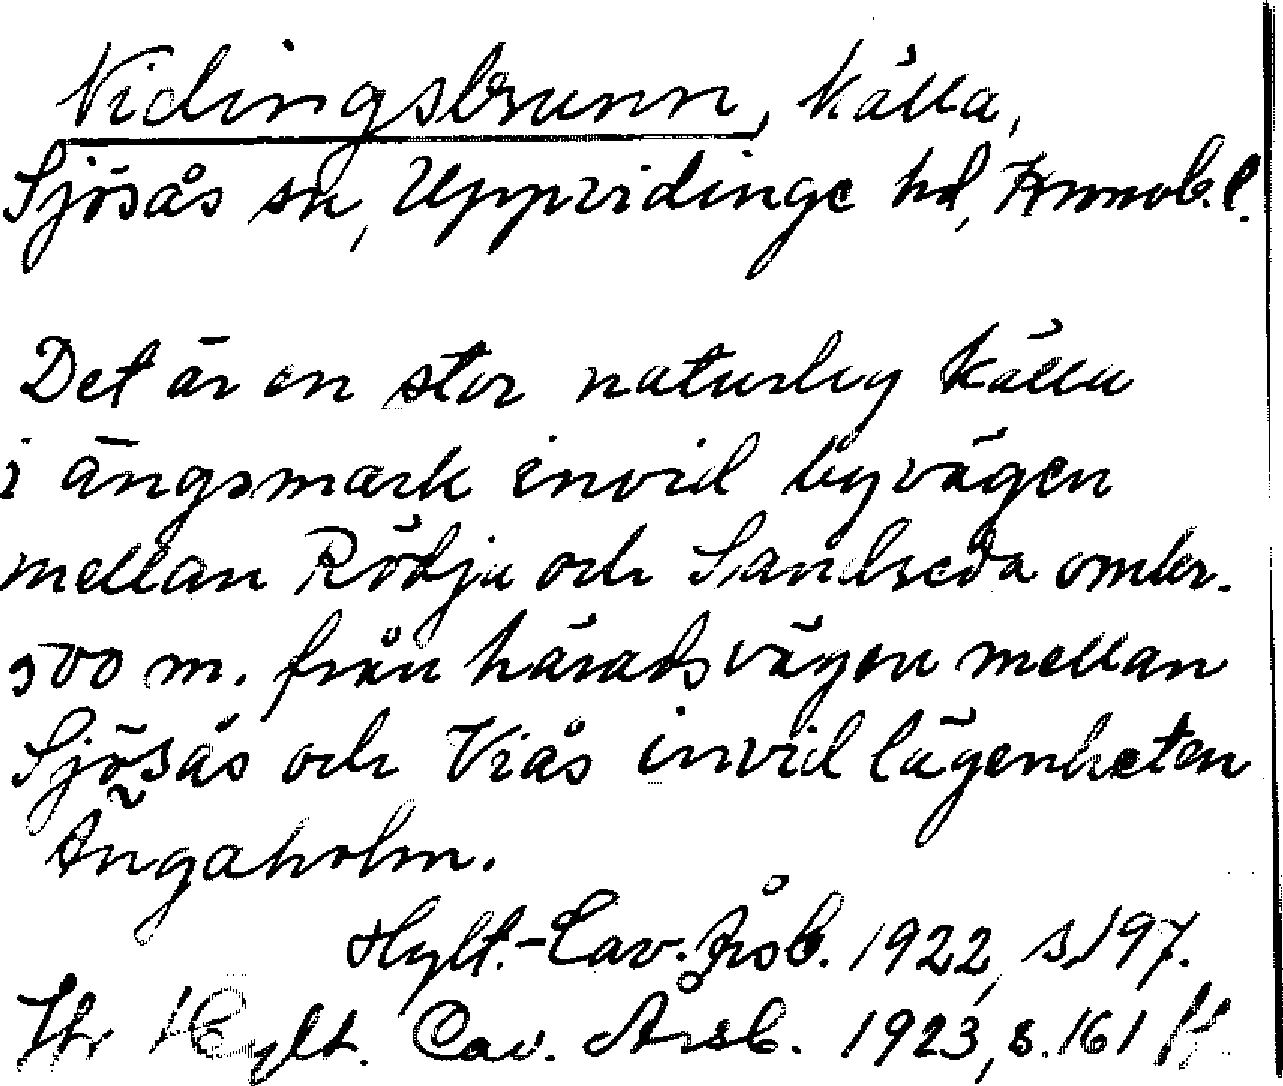 Vidingsbrunn, källa,
Sjösås sn, Uppvidinge hd, Kronob. l.
Det är en stor naturlig källa
i ängsmark invid byvägen
mellan Rödje och Sandreda omkr.
500 m. från häradsvägen mellan
Sjösås och Viås invid lägenheten
Ängaholm.
Hylt.-Cav. Årsb. 1922, s. 197.
Jfr Hylt. Cav. Årsb. 1923, s. 161 ff.